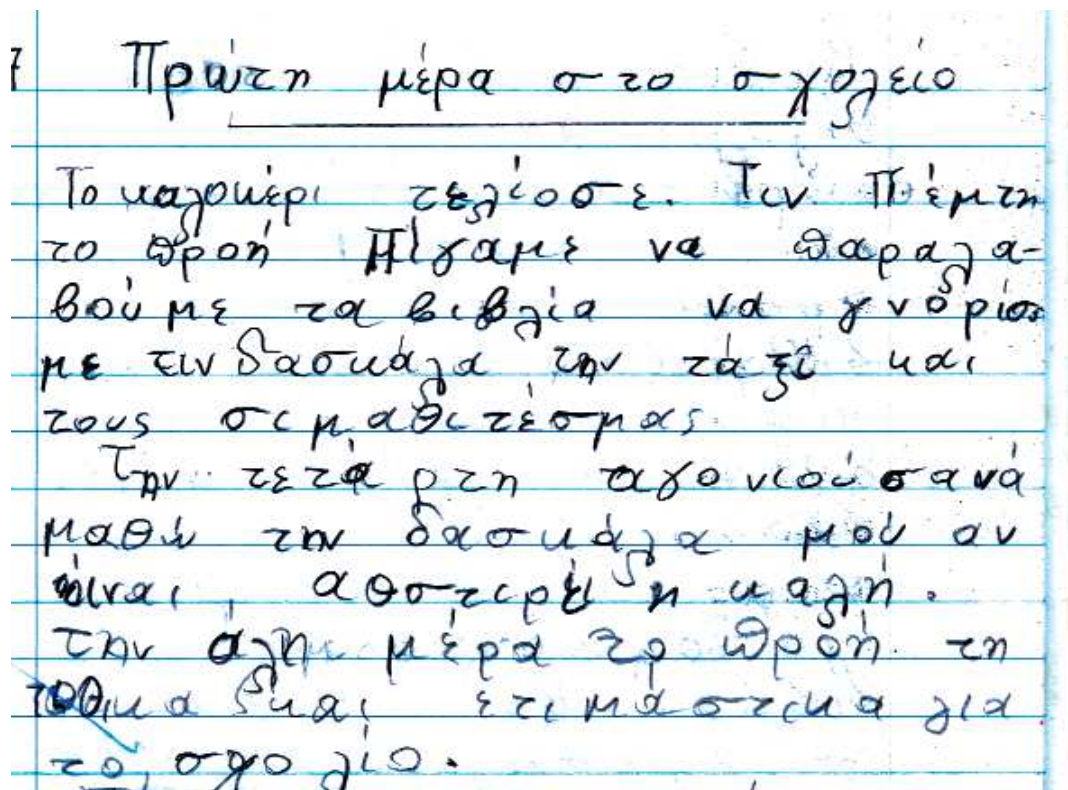 Πρώτη μέρα στο σχολείο
Το καλοκέρι τελίοσε. Τιν Πέμτη
το προή Πίγαμε να παραλα-
βούμε τα βιβλία να γνορίσο
με τιν δασκάλα την τάξι και
τους σιμαθιτέσμας.
Την τετάρτη αγονιούσανά
μαθώ την δασκάλα μού αν
είναι αφστιρή η καλή.
την άλη μέρα το προή τη
θικα και ετιμάστικα για
το σχολίο.